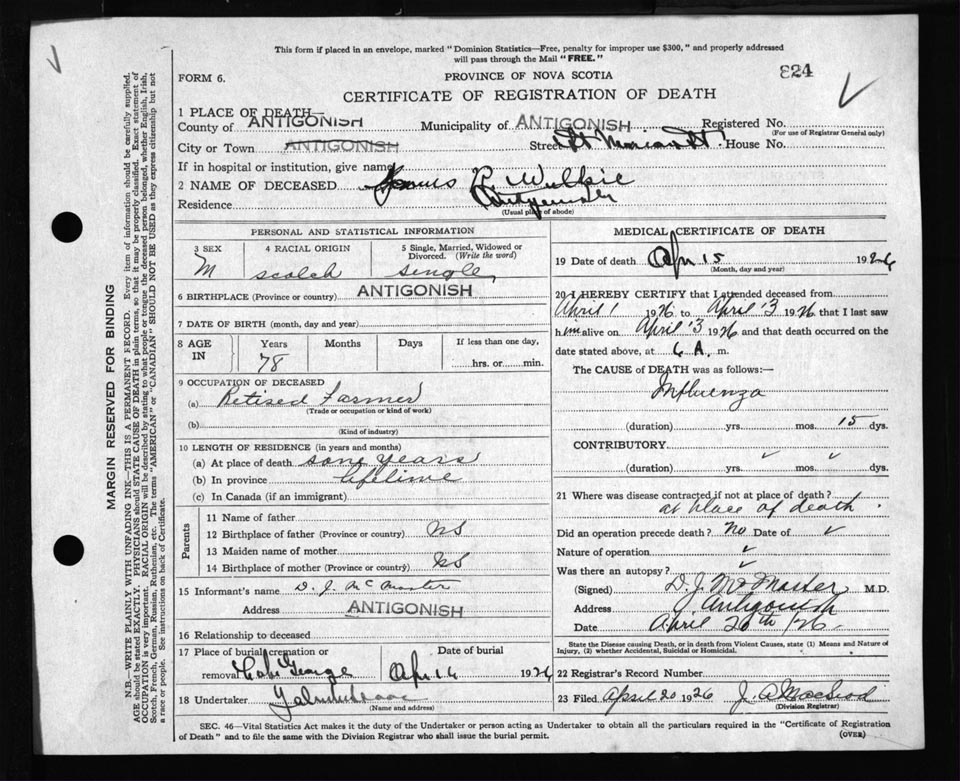 This form if placed in an envelope, marked "Dominion Statistics—Free, penalty for improper use $300," and properly addressed
will pass through the Mail "FREE."
FORM 6.
PROVINCE OF NOVA SCOTIA
824
CERTIFICATE OF REGISTRATION OF DEATH
1 PLACE OF DEATH
County of ANTIGONISH Municipality of ANTIGONISH Registered No.
(For use of Registrar General only)
City or Town ANTIGONISH Street St House No.
If in hospital or institution, give name
2 NAME OF DECEASED P. Wilkie
Residence Antigonish
(Usual place of abode)
PERSONAL AND STATISTICAL INFORMATION
3 SEX 4 RACIAL ORIGIN 5 Single, Married, Widowed or Divorced. (Write the word)
M scotch single
6 BIRTHPLACE (Province or country) ANTIGONISH
7 DATE OF BIRTH (month, day and year)
8 AGE IN Years Months Days If less than one day,
78 hrs. or min.
9 OCCUPATION OF DECEASED
(a) Retired Farmer
(Trade or occupation or kind of work)
(b)
(Kind of industry)
10 LENGTH OF RESIDENCE (in years and months)
(a) At place of death some years
(b) In province lifetime
(c) In Canada (if an immigrant)
Parents
11 Name of father
12 Birthplace of father (Province or country) NS
13 Maiden name of mother
14 Birthplace of mother (Province or country) NS
15 Informant's name D. J. McMaster
Address ANTIGONISH
16 Relationship to deceased
17 Place of burial, cremation or removal Cape George Date of burial Apr 16 1926
18 Undertaker
(Name and address)
MEDICAL CERTIFICATE OF DEATH
19 Date of death Apr 15 1926
(Month, day and year)
20 I HEREBY CERTIFY that I attended deceased from
April 1 1926 to April 13 1926 that I last saw
him alive on April 13 1926 and that death occurred on
date stated above, at 6 A. m.
The CAUSE of DEATH was as follows:—
Influenza
(duration) yrs. mos. 15 dys.
CONTRIBUTORY
(duration) yrs. mos. dys.
21 Where was disease contracted if not at place of death?
at place of death.
Did an operation precede death? No Date of
Nature of operation
Was there an autopsy?
(Signed) D. J. McMaster M.D.
Address Antigonish
Date April 20th/26
State the Disease causing Death, or in death from Violent Causes, state (1) Means and Nature of
Injury, (2) whether Accidental, Suicidal or Homicidal.
22 Registrar's Record Number
23 Filed April 20 1926 J. A. MacLeod
(Division Registrar)
SEC. 46—Vital Statistics Act makes it the duty of the Undertaker or person acting as Undertaker to obtain all the particulars required in the "Certificate of Registration
of Death" and to file the same with the Division Registrar who shall issue the burial permit.
(OVER)
MARGIN RESERVED FOR BINDING
N.B.—WRITE PLAINLY WITH UNFADING INK—THIS IS A PERMANENT RECORD. Every item of information should be carefully supplied.
AGE should be stated EXACTLY. PHYSICIANS should STATE CAUSE OF DEATH in plain terms, so that it may be properly classified. Exact statement of
OCCUPATION is very important. RACIAL ORIGIN will be described by stating to what people or tongue the deceased person belonged, whether English, Irish,
Scotch, French, German, Russian, Ruthenian, etc. The terms "AMERICAN" or "CANADIAN" SHOULD NOT BE USED as they express citizenship but not
a race or people. See instructions on back of Certificate.